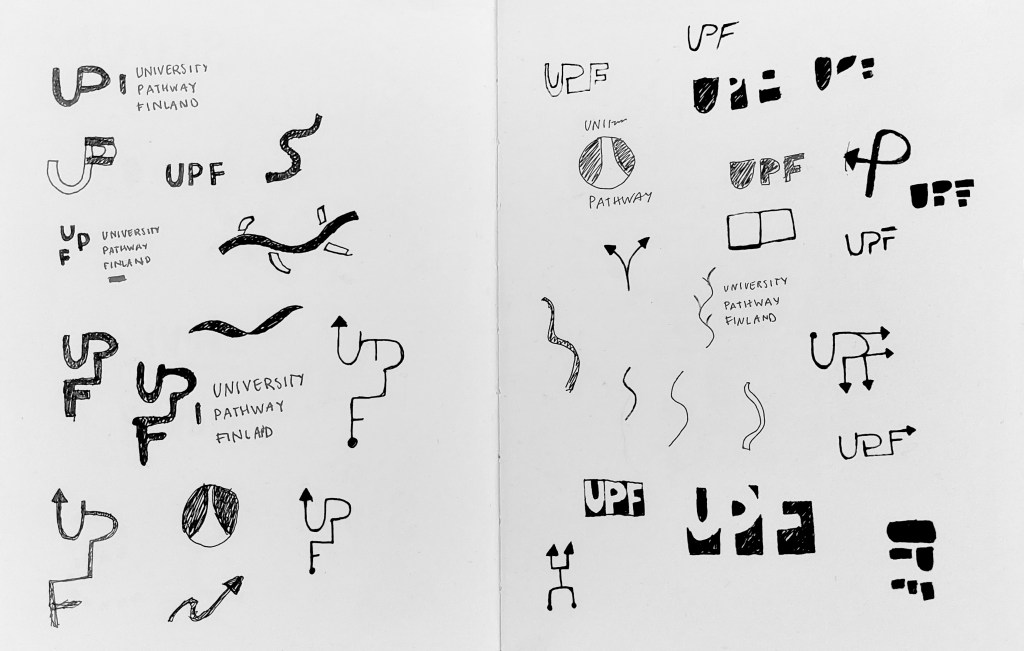 UP
UNIVERSITY
PATHWAY
FINLAND
UPF
UPF
UP
F
UNIVERSITY
PATHWAY
FINLAND
UP
F
UP
F
UNIVERSITY
PATHWAY
FINLAND
UP
F
UP
F
UP
F
UPF
UPF
UPF
UPF
PATHWAY
UPF
UP
UPF
UPF
UNIVERSITY
PATHWAY
FINLAND
UPF
UPF
UPF
UPF
U
P
F